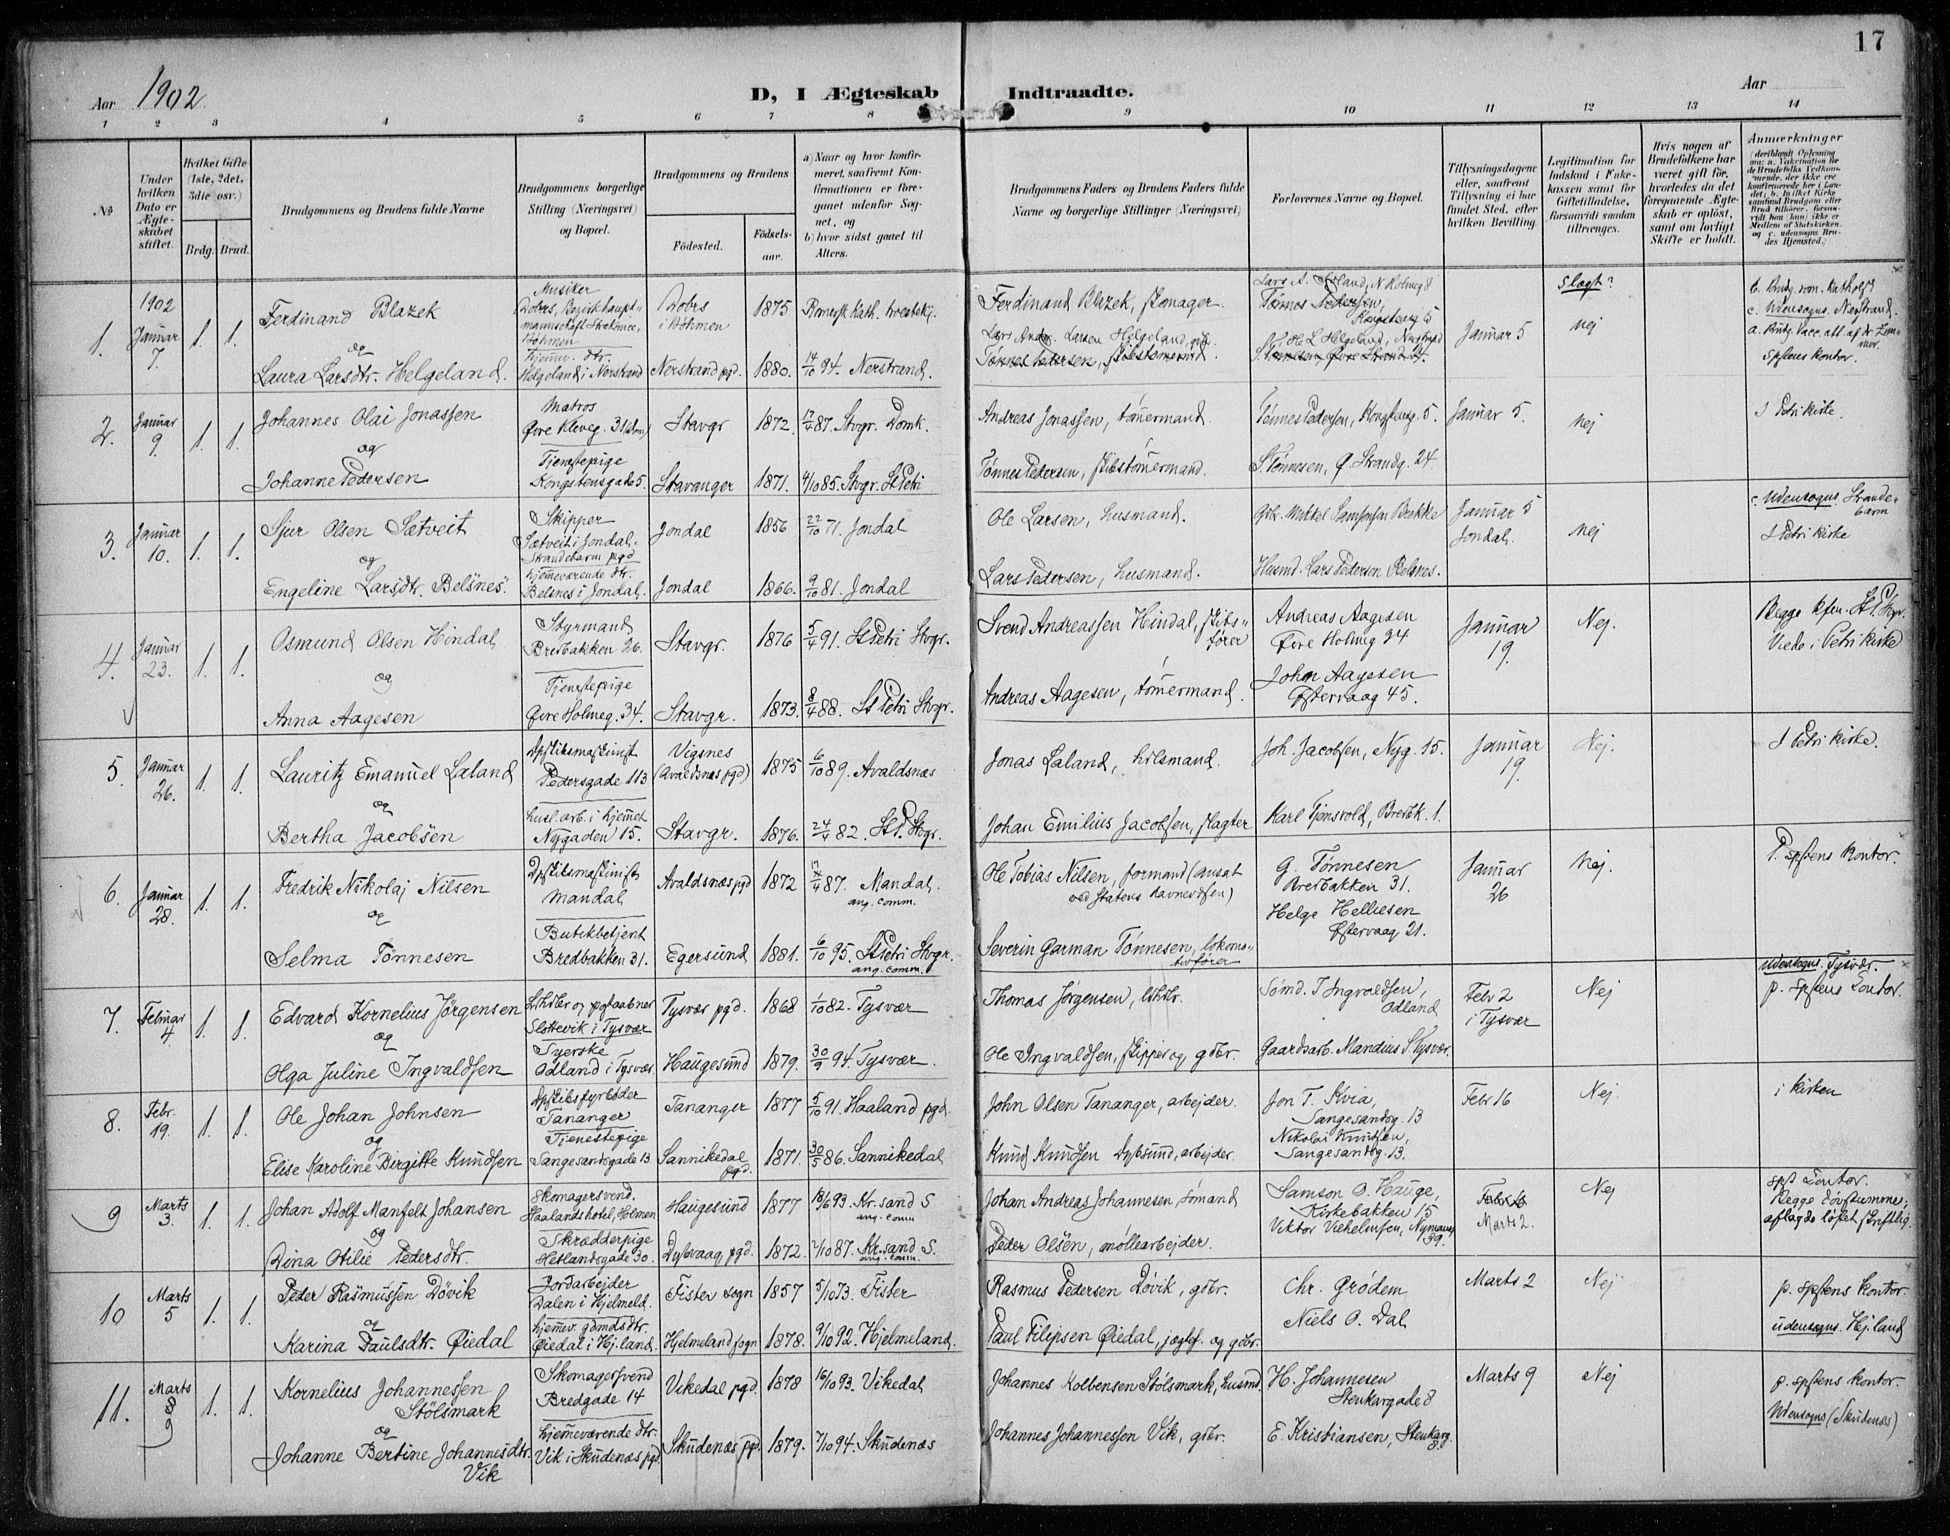 17
Aar 1902
D, I Ægteskab Indtraadte.
Aar
1 2 3 4 5 6 7 8 9 10 11 12 13 14
No
Under hvilken Dato er Ægteskabet stiftet.
Hvilket Gifte (1ste, 2det, 3die osv.)
Brdg. Brud.
Brudgommens og Brudens fulde Navne
Brudgommens borgerlige Stilling (Næringsvei) og Bopæl.
Brudgommens og Brudens
Fødested. Fødselsaar.
a) Naar og hvor konfirmeret, saafremt Konfirmationen er foregaaet udenfor Sognet, og
b) hvor sidst gaaet til Alters.
Brudgommens Faders og Brudens Faders fulde Navne og borgerlige Stillinger (Næringsvei)
Forlovernes Navne og Bopæl.
Tillysningsdagene eller, saafremt Tillysning ei har fundet Sted, efter hvilken Bevilling.
Legitimation for Indskud i Enkekassen samt for Giftetilladelse, forsaavidt saadan tiltrænges.
Hvis nogen af Brudefolkene har været gift før, hvorledes da det foregaaende Ægteskab er opløst, samt om lovligt Skifte er holdt.
Anmærkninger
1. 1902 Januar 7. 1. 1. Ferdinand Blazek Musiker Böhmen i Böhmen 1875 Ferdinand Blazek, Tønnes Pedersen, Kongsteng 5 Januar 5 Nej
og
Laura Larsdtr. Helgeland. Hjemv. dtr. Helgeland i Nerstrand Nerstrand pgd. 1880. 14/10 94. Nerstrand.
2. Januar 9. 1. 1. Johannes Olai Jonassen Matros Øvre Kleveg. 31 Stavgr 1872. 87. Stvgr. Domk. Andreas Jonassen, tømermand. Tønnes Pedersen, Kongsteng. 5. Januar 5 Nej I Petri kirke.
og
Johanne Pedersen Tjenestepige Kongstensgade 5. Stavanger 1871. 4/10 85. Stvgr. St Petri Tønnes Pedersen, skibstømermand. S. Tønnesen, Ø. Strandg. 24.
3. Januar 10. 1. 1. Sjur Olsen Sætveit Skipper Sætveit i Jondal. Strandebarm pgd Jondal 1856 22/10 71. Jondal Ole Larsen, husmand. Januar 5 Jondal. Nej c. Udensogns Strandebarm I Petri kirke
og
Engeline Larsdtr. Belsnes. hjemeværende dtr. Belsnes i Jondal. Jondal 1866. 9/10 81. Jondal Lars Pedersen, husmand. Husmd. Lars Pedersen Belsnes.
4. Januar 23. 1. 1. Osmund Olsen Hindal Styrmand Bredbakken 26. Stavgr. 1876 5/4 91. St Petri Stvgr. Svend Andreassen Hindal, skibsfører Andreas Aagesen Øvre Holmeg 34 Januar 19. Nej. Viede i Petri kirke
og
Anna Aagesen Tjenestepige Øvre Holmeg. 34. Stavgr. 1873. 8/4 88. St Petri Stvgr. Andreas Aagesen, tømermand. Johan Aagesen Østervaag 45.
5. Januar 26. 1. 1. Lauritz Emanuel Laland Pedersgade 113 Vigsnes (Avaldsnæs pgd) 1875 6/10 89. Avaldsnæs Jonas Laland, Joh. Jacobsen, Nyg. 15. Januar 19. Nej. I Petri kirke.
og
Bertha Jacobsen husl. arb. i hjemet Nygaden 15. Stavgr. 1876. 82. St P. Stvgr. Johan Emilius Jacobsen, slagter Karl Tjensvold, Bredbk. 1.
6. Januar 28. 1. 1. Fredrik Nikolaj Nilsen Mandal Avaldsnæs pgd 1872 87. Mandal. ang. comm. Ole Tobias Nilsen, formand (ansat ved Statens havnevæsen) G. Tønnesen Bredbakken 31. Januar 26 Nej. P. spstens kontor.
og
Selma Tønnesen Butikbetjent Bredbakken 31. Egersund 1881. 6/10 95. St Petri Stvgr. ang. comm. Severin Garman Tønnesen, lokomotivfører Helge Helliesen Østervaag 21.
7. Februar 4. 1. 1. Edvard Kornelius Jørgensen Slottevik i Tysvær Tysvær pgd. 1868 1/10 82. Tysvær Thomas Jørgensen, Sømd. T Ingvaldsen, Odland Febr 2 i Tysvær Nej udensogns Tysvær. p. spstens kontor.
og
Olga Juline Ingvaldsen Syerske Odland i Tysvær Haugesund 1879. 30/9 94. Tysvær. Ole Ingvaldsen, skipper og gdbr. Gaardsarb. Mandius S. Tysvær.
8. Febr. 19. 1. 1. Ole Johan Johnsen Dpskibsfyrbøder Tananger Tananger 1877 5/10 91. Haaland pgd. John Olsen Tananger, arbejder. Jon T. Kvia, Sangesandsg. 13 Febr 16 Nej. i kirken
og
Elise Karoline Birgitte Knudsen Tjenestepige Sangesandsgade 13 Sannikedal pgd. 1871. 30/5 86. Sannikedal Knud Knudsen Dybsund, arbejder. Nikolai Knudsen, Sangesandsg. 13.
9 Marts 3. 1. 1. Johan Adolf Manfelt Johansen Skomagersvend. Haalands hotel, Holmen Haugesund 1877 93. Kr. sand S ang. comm Johan Andreas Johannesen, sømand Samson O. Hauge, Kirkebakken 15 Febr 16 Marts 2. Nej spst kontor. Begge døvstumme; aflagde løftet skriftlig.
og
Dina Otilie Pedersdtr. Skrædderpige Hetlandsgade 30. Dybvaag pgd. 1872. 2/10 87. Kr. sand S. ang. comm. Peder Olsen, møllearbejder. Viktor Vilhelmsen, 39.
10 Marts 5 1. 1. Peder Rasmussen Døvik Jordarbejder Dalen i Hjelmeld. Fister sogn 1857 5/10 73. Fister Rasmus Pedersen Døvik, gdbr. Chr. Grødem Marts 2 Nej p. spstens kontor.
og
Karina Paulsdtr. Øiedal hjemev. gdmdsdtr. Øiedal i Hj. land. Hjelmeland sogn 1878. 9/10 92. Hjelmeland. Paul Filipsen Øiedal, jægtf. og gdbr. Niels O. Dal udensogns Hj. land
11. Marts 9 1. 1. Kornelius Johannessen Stölsmark Skomagersvend Bredgade 14 Vikedal pgd. 1878 16/10 93. Vikedal Johannes Kolbensen Stölsmark, husmd. H. Johannesen Stenkargade 8 Marts 9 Nej p. spstens kontor. Udensogns (Skudenæs)
og
Johanne Bertine Johannesdtr. Vik hjemeværende dtr. Vik i Skudenæs pgd. Skudenæs pgd. 1879. 2/10 94. Skudenæs Johannes Johannessen Vik, gdbr. E. Kristiansen, Stenkarg. 8.